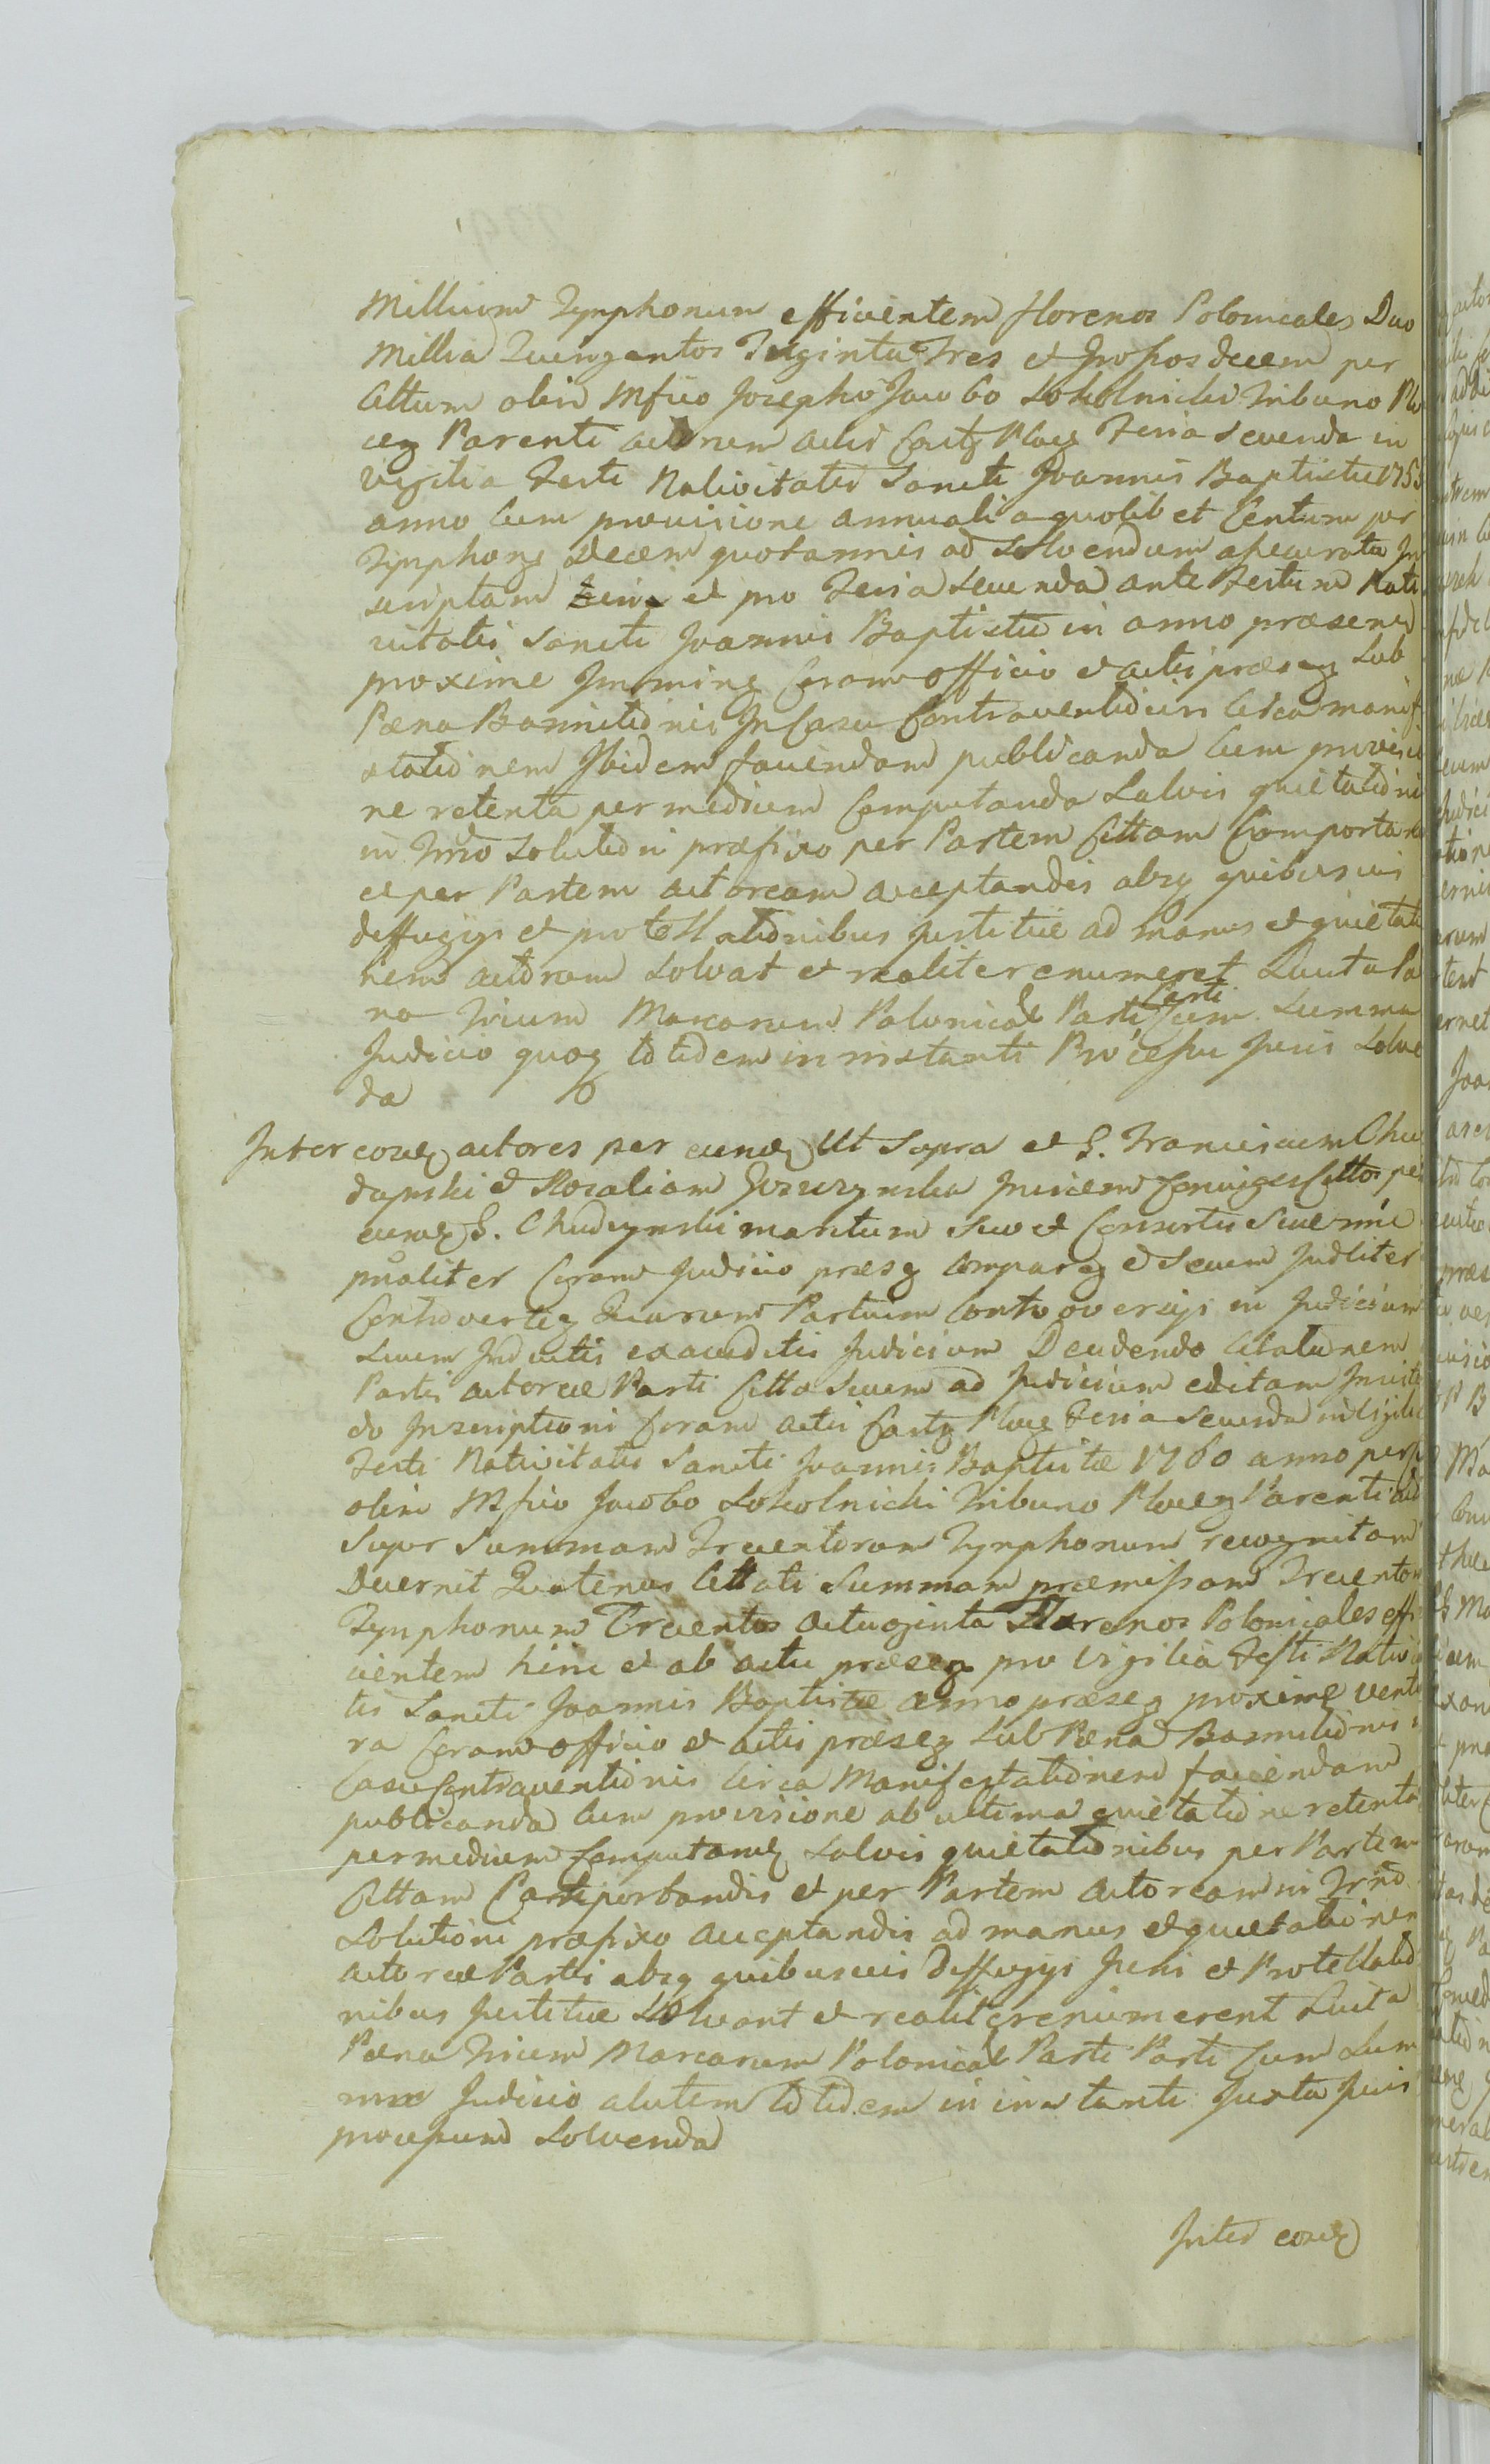 Millium Tymphonum efficientem florenos Polonicales Duo
Millia Quingentos Triginta Tres et Grossos decem per
Cittum olim Mfico Josepho Jacobo Sokolnicki Tribuno Plo
ceg Parenti actorum actis Castr Ploceg Feria Secunda in
Vigilia Festi Nativitatis Sancti Joannis Baptistae 175
anno cum provisione annuali a quolibet Centum per
Tymphong decem quotannis ad Solvendum assecurata In
scriptam et pro Feria Secunda ante Festum Nati
vitatis Sancti Joannis Baptistae in anno praesenti
proxime Imming Coram officio et actis praeseg Sub
Paena Bannitionis In Casu Contraventionis Circa manife
stationem Ibidem faciendam publicanda cum provisio
ne retenta per medium Computanda Salvis quietationi
in Trno Solutioni praefixo per Partem Cittam Comporta
et per Partem actoream acceptandis absq quibusvis
diffugijs et protellationibus justitiae ad manus et quietatio
nem actorum Solvat et realiter enumeret Luita Pae
na Trium Marcarum Polonical Parti Parti cum Summa
Judicio quoq totidem in instanti Processu Juris Solve
da
Inter eosdem actores per eundem Ut Supra et G. Franciscum Chu
dzynski et Rosaliam Gorczynska Invicem Conjuges Cittos per
eundem G. Chudzynski maritum Suo et Consortis Suae nnie
pnaliter Coram Judicio praeseg Compareg et Secum Judliter
Controverteg Quarum Partium Controversijs in Judicium
Suum Inductis exauditis Judicium Deudendo Citationem
Partis actoreae Parti Citta Suum ad Judicium editam Insiste
do Inscriptioni Coram actis Castr Ploceg Feria Secunda in Vigilia
Festi Nativitatis Sancti Joannis Baptistae 1760 anno per
olim Mfico Jacobo Sokolnicki Tribuno Ploceg Parenti act
Super Summam Trecentorum Tymphonum recognitam
Decernit Quatenus Cittati Summam praemissam Trecentorum
Tymphonum Trecentos Octuaginta Florenos Polonicales effi
cientem hinc et ab actu praeseg pro Vigilia Festi Nativita
tis Sancti Joannis Baptistae anno praeseg proxime ventu
ra Coram officio et actis praeseg Sub Paena Bannitionis
Casu Contraventionis Circa Manifestationem faciendam
publicanda cum provisione ab ultima quietatione retenta
per medium Computand Salvis quietationibus per Partem
Cittam Comportandis et per Partem actoream in Trno
Solutioni praefixo acceptandis ad manus et quietationem
actoreae Partis absq quibusvis diffugijs Juris et Protellatio
nibus Justitiae Solvant et realiter enumerent Luita
Paena Trium Marcarum Polonical Parti Parti cum Sum
ma Judicio alutem totidem in instanti Juxta Juris
processum Solvenda
Inter eosdem